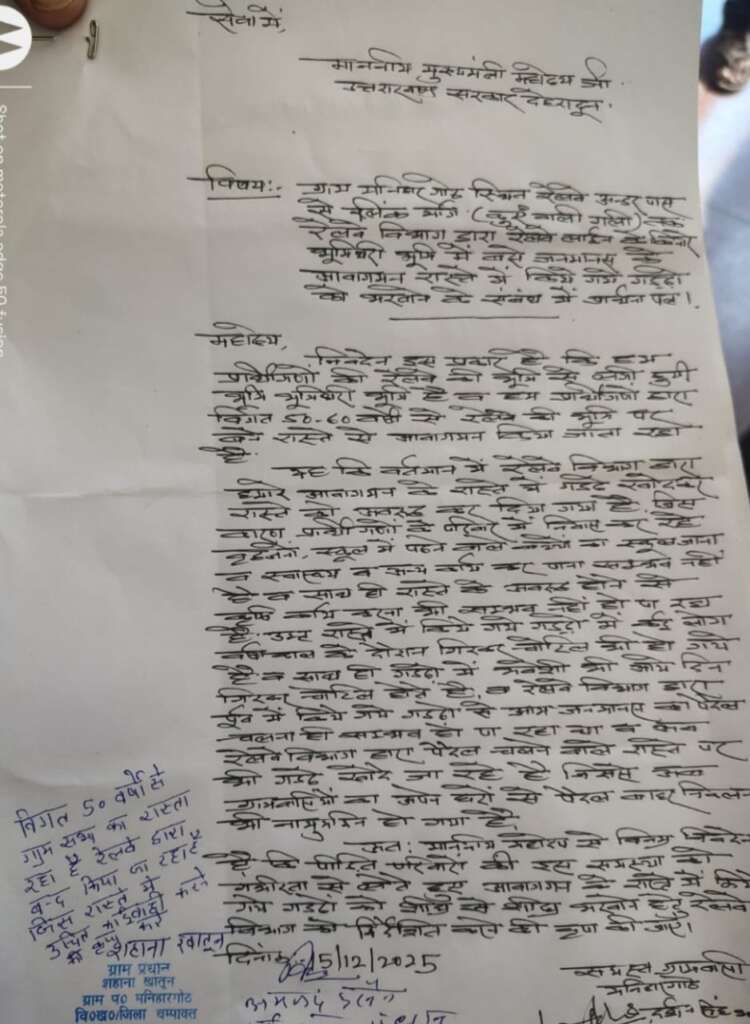 सेवा में,
माननीय मुख्यमंत्री महोदय जी
उत्तराखण्ड सरकार देहरादून।
विषय:- ग्राम मनिहारगोठ स्थित रेलवे अन्डर पास
से पब्लिक मार्ग (कुएँ वाली गली) तक
रेलवे विभाग द्वारा रेलवे लाईन के किनारे
भूमिधरी भूमि में बसे जनमानस के
आवागमन रास्ते में किये गये गड्ढों
को भरवाने के संबंध में प्रार्थना पत्र।
महोदय,
निवेदन इस प्रकार है कि हम
प्रार्थीगणों की रेलवे की भूमि से लगी हुयी
भूमि भूमिधरी भूमि है व हम प्रार्थीगणों द्वारा
विगत 50-60 वर्षों से रेलवे की भूमि पर
बने रास्ते से आवागमन किया जाता रहा
है।
यह कि वर्तमान में रेलवे विभाग द्वारा
हमारे आवागमन के रास्ते में गड्ढे खोदकर
रास्ते को अवरुद्ध कर दिया गया है, जिस
कारण प्रार्थीगणों के परिवार में निवास कर रहे
स्कूल में पढ़ने वाले बच्चों का स्कूल जाना
व स्वास्थ्य व अन्य कार्य कर पाना सम्भव नहीं
है व साथ ही रास्ते के अवरुद्ध होने से
कृषि कार्य करना भी सम्भव नहीं हो पा रहा
है। उक्त रास्ते में किये गये गड्ढों में कई लोग
वर्षा काल के दौरान गिरकर चोटिल भी हो गये
है व साथ ही गड्ढों में मवेशी भी आये दिन
गिरकर चोटिल होते है, व रेलवे विभाग द्वारा
पूर्व में किये गये गड्ढों से आम जनमानस का पैदल
चलना ही सम्भव हो पा रहा था व
रेलवे विभाग द्वारा पैदल चलने वाले रास्ते पर
भी गड्ढे खोदे जा रहे है जिससे अब
ग्रामवासियों का अपने घरों से पैदल बाहर निकलना
भी नामुमकिन हो गया है
अतः माननीय महोदय से विनम्र निवेदन
है कि पीड़ित परिवारों की इस समस्या को
गंभीरता से लेते हुए आवागमन के रास्ते में किये
गये गड्ढों को शीघ्र से शीघ्र भरवाने हेतु रेलवे
विभाग को निर्देशित करने की कृपा की जाए।
दिनांक 15/12/2025
समस्त ग्रामवासी
मनिहारगोठ
विगत 50 वर्षों से
ग्राम सभा का रास्ता
रहा है रेलवे द्वारा
बन्द किया जा रहा है
जिस रास्ते में
उचित कार्यवाही करने
की कृपा करे
शहाना खातून
ग्राम प्रधान
शहाना खातून
ग्राम प० मनिहारगोठ
वि०ख०/जिला चम्पावत
Shot on motorola edge 50 fusion